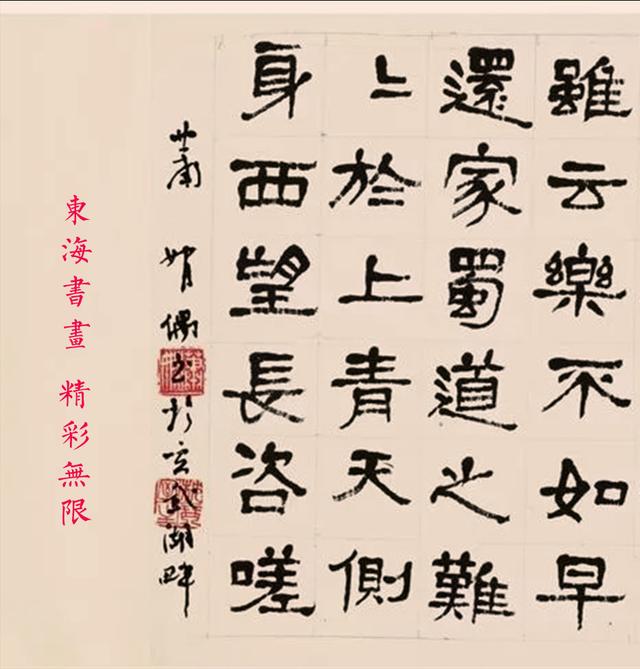 雖云樂不如早
還家蜀道之難
〻於上青天側
身西望長咨嗟
蕭嫻偶书於玄武湖畔
東海書畫 精彩無限